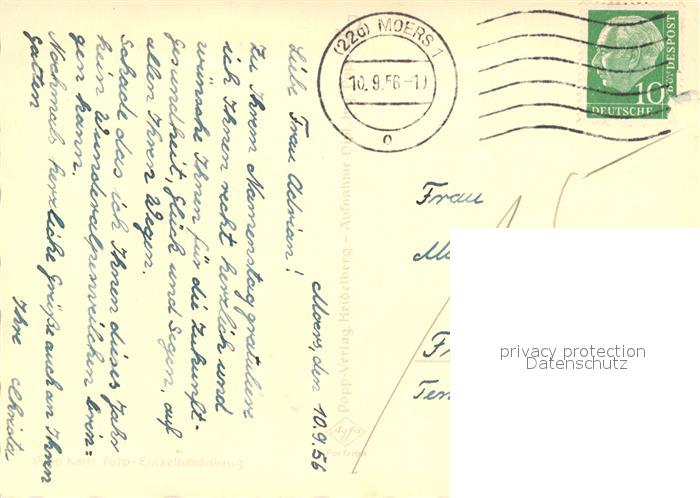 Moers, den 10.9.56
Liebe Frau Adrian!
Zu Ihrem Namenstag gratuliere
ich Ihnen recht herzlich und
wünsche Ihnen für die Zukunft-
Gesundheit, Glück und Segen, auf
allen Ihren Wegen.
Schade das ich Ihnen dieses Jahr
kein Wunderalpenveilchen brin=
gen kann.
Nochmals herzliche Grüße auch an Ihren
Gatten
Ihre Christa
Popp-Verlag, Heidelberg – Aufnahme
Agfa
Foto-Einzelhandabzug
(22a) MOERS 1
10.9.56-1
DEUTSCHE
BUNDESPOST
10
Frau
privacy protection
Datenschutz